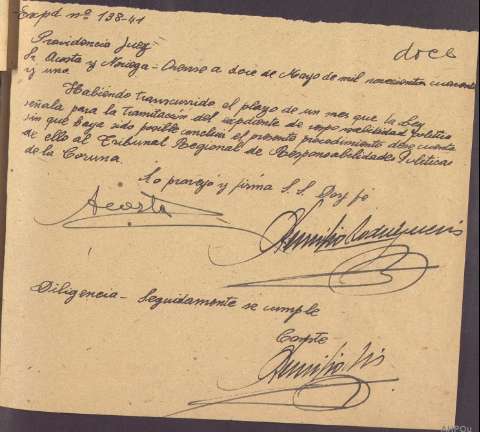 Expd. nº 138-41
doce
Providencia Juez
Sr. Acosta y Noriega - Orense a doce de Mayo de mil novecientos cuarenta
y uno.
Habiendo transcurrido el plazo de un mes que la Ley
señala para la tramitacion del expdiente de responsabilidad politica
sin que haya sido posible concluir el presente procedimiento dese cuenta
de ello al Tribunal Regional de Responsabilidades Politicas
de la Coruna.
Lo proveyó y firma S.S. Doy fé
Acosta
Diligencia - Seguidamente se cumple
AHPOu